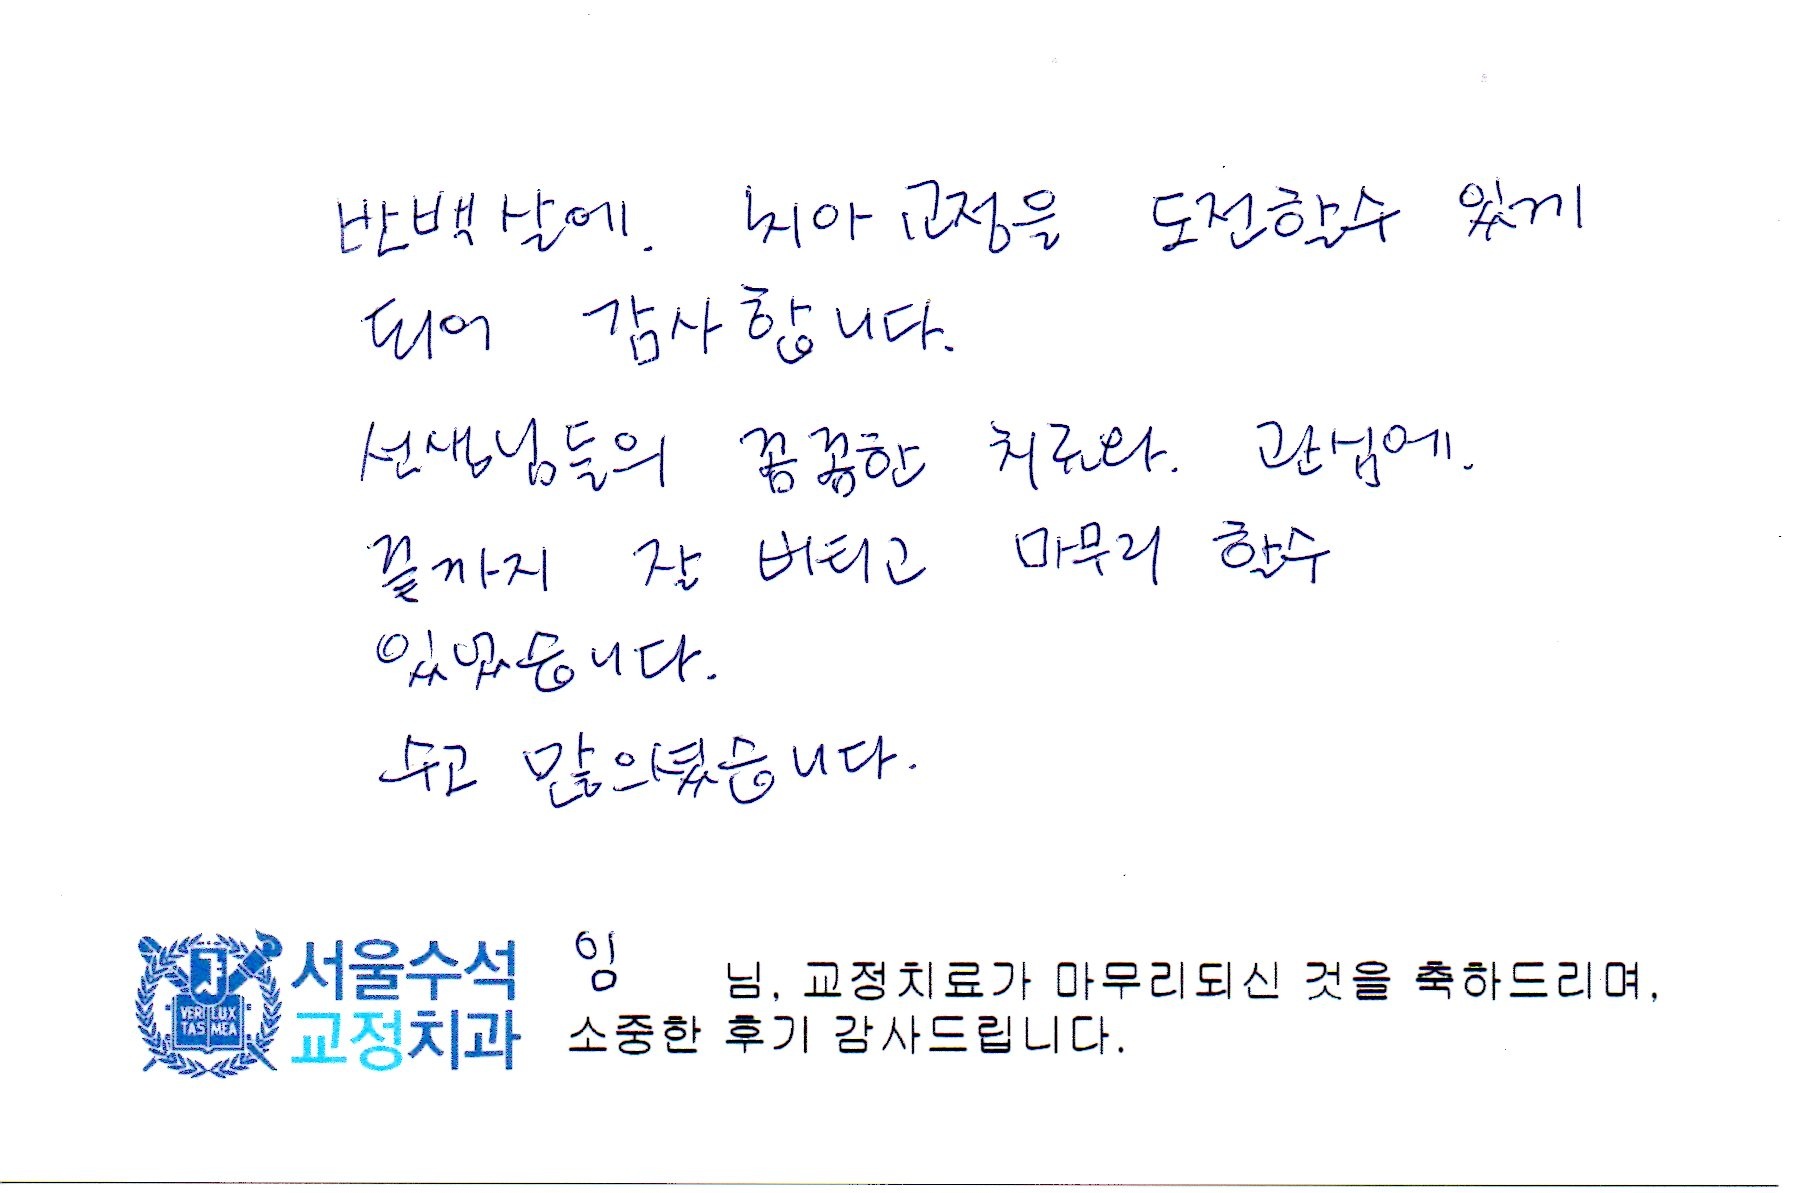 반백살에. 치아 교정을 도전할수 있게
되어 감사합니다.
선생님들의 꼼꼼한 치료와. 관심에.
끝까지 잘 버티고 마무리 할수
있었습니다.
수고 많으셨습니다.
서울수석
교정치과
VERI LUX
TAS MEA
임 님, 교정치료가 마무리되신 것을 축하드리며,
소중한 후기 감사드립니다.